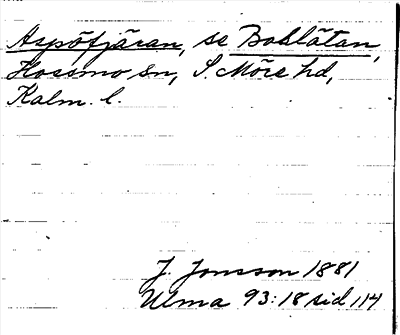 Aspöfjäran, se Boblåtan,
Hossmo sn, S. Möre hd,
Kalm. l.
J. Jonsson 1881
Ulma 93:18 sid 114